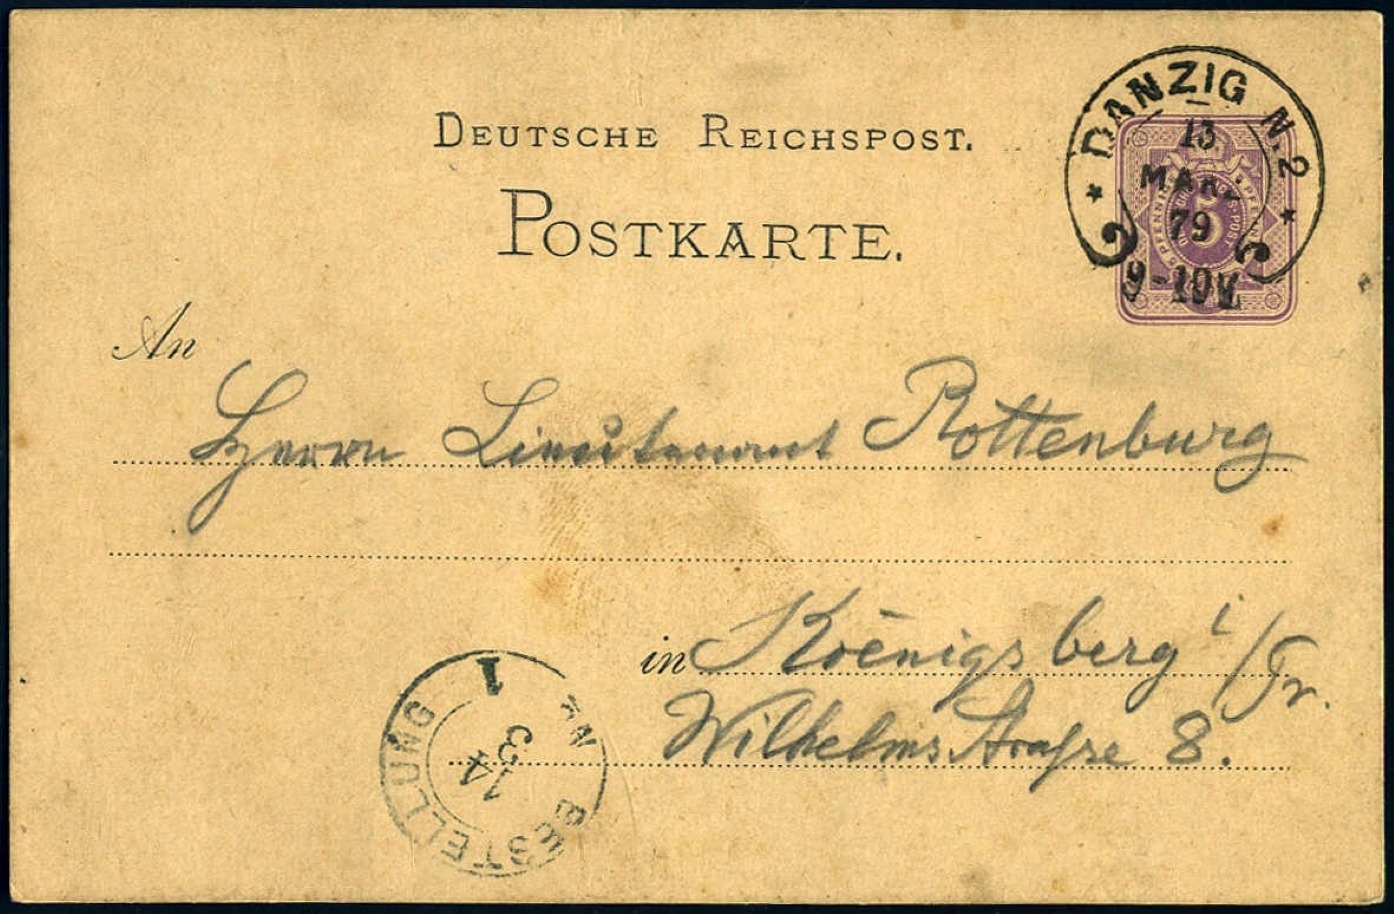 DEUTSCHE REICHSPOST.
POSTKARTE.
DANZIG N. 2
13
79
An
Herrn Lieutenant Rottenburg
in Koënigsberg i/Pr.
Wilhelms Straße 8.
BESTELLUNG
14
3
1